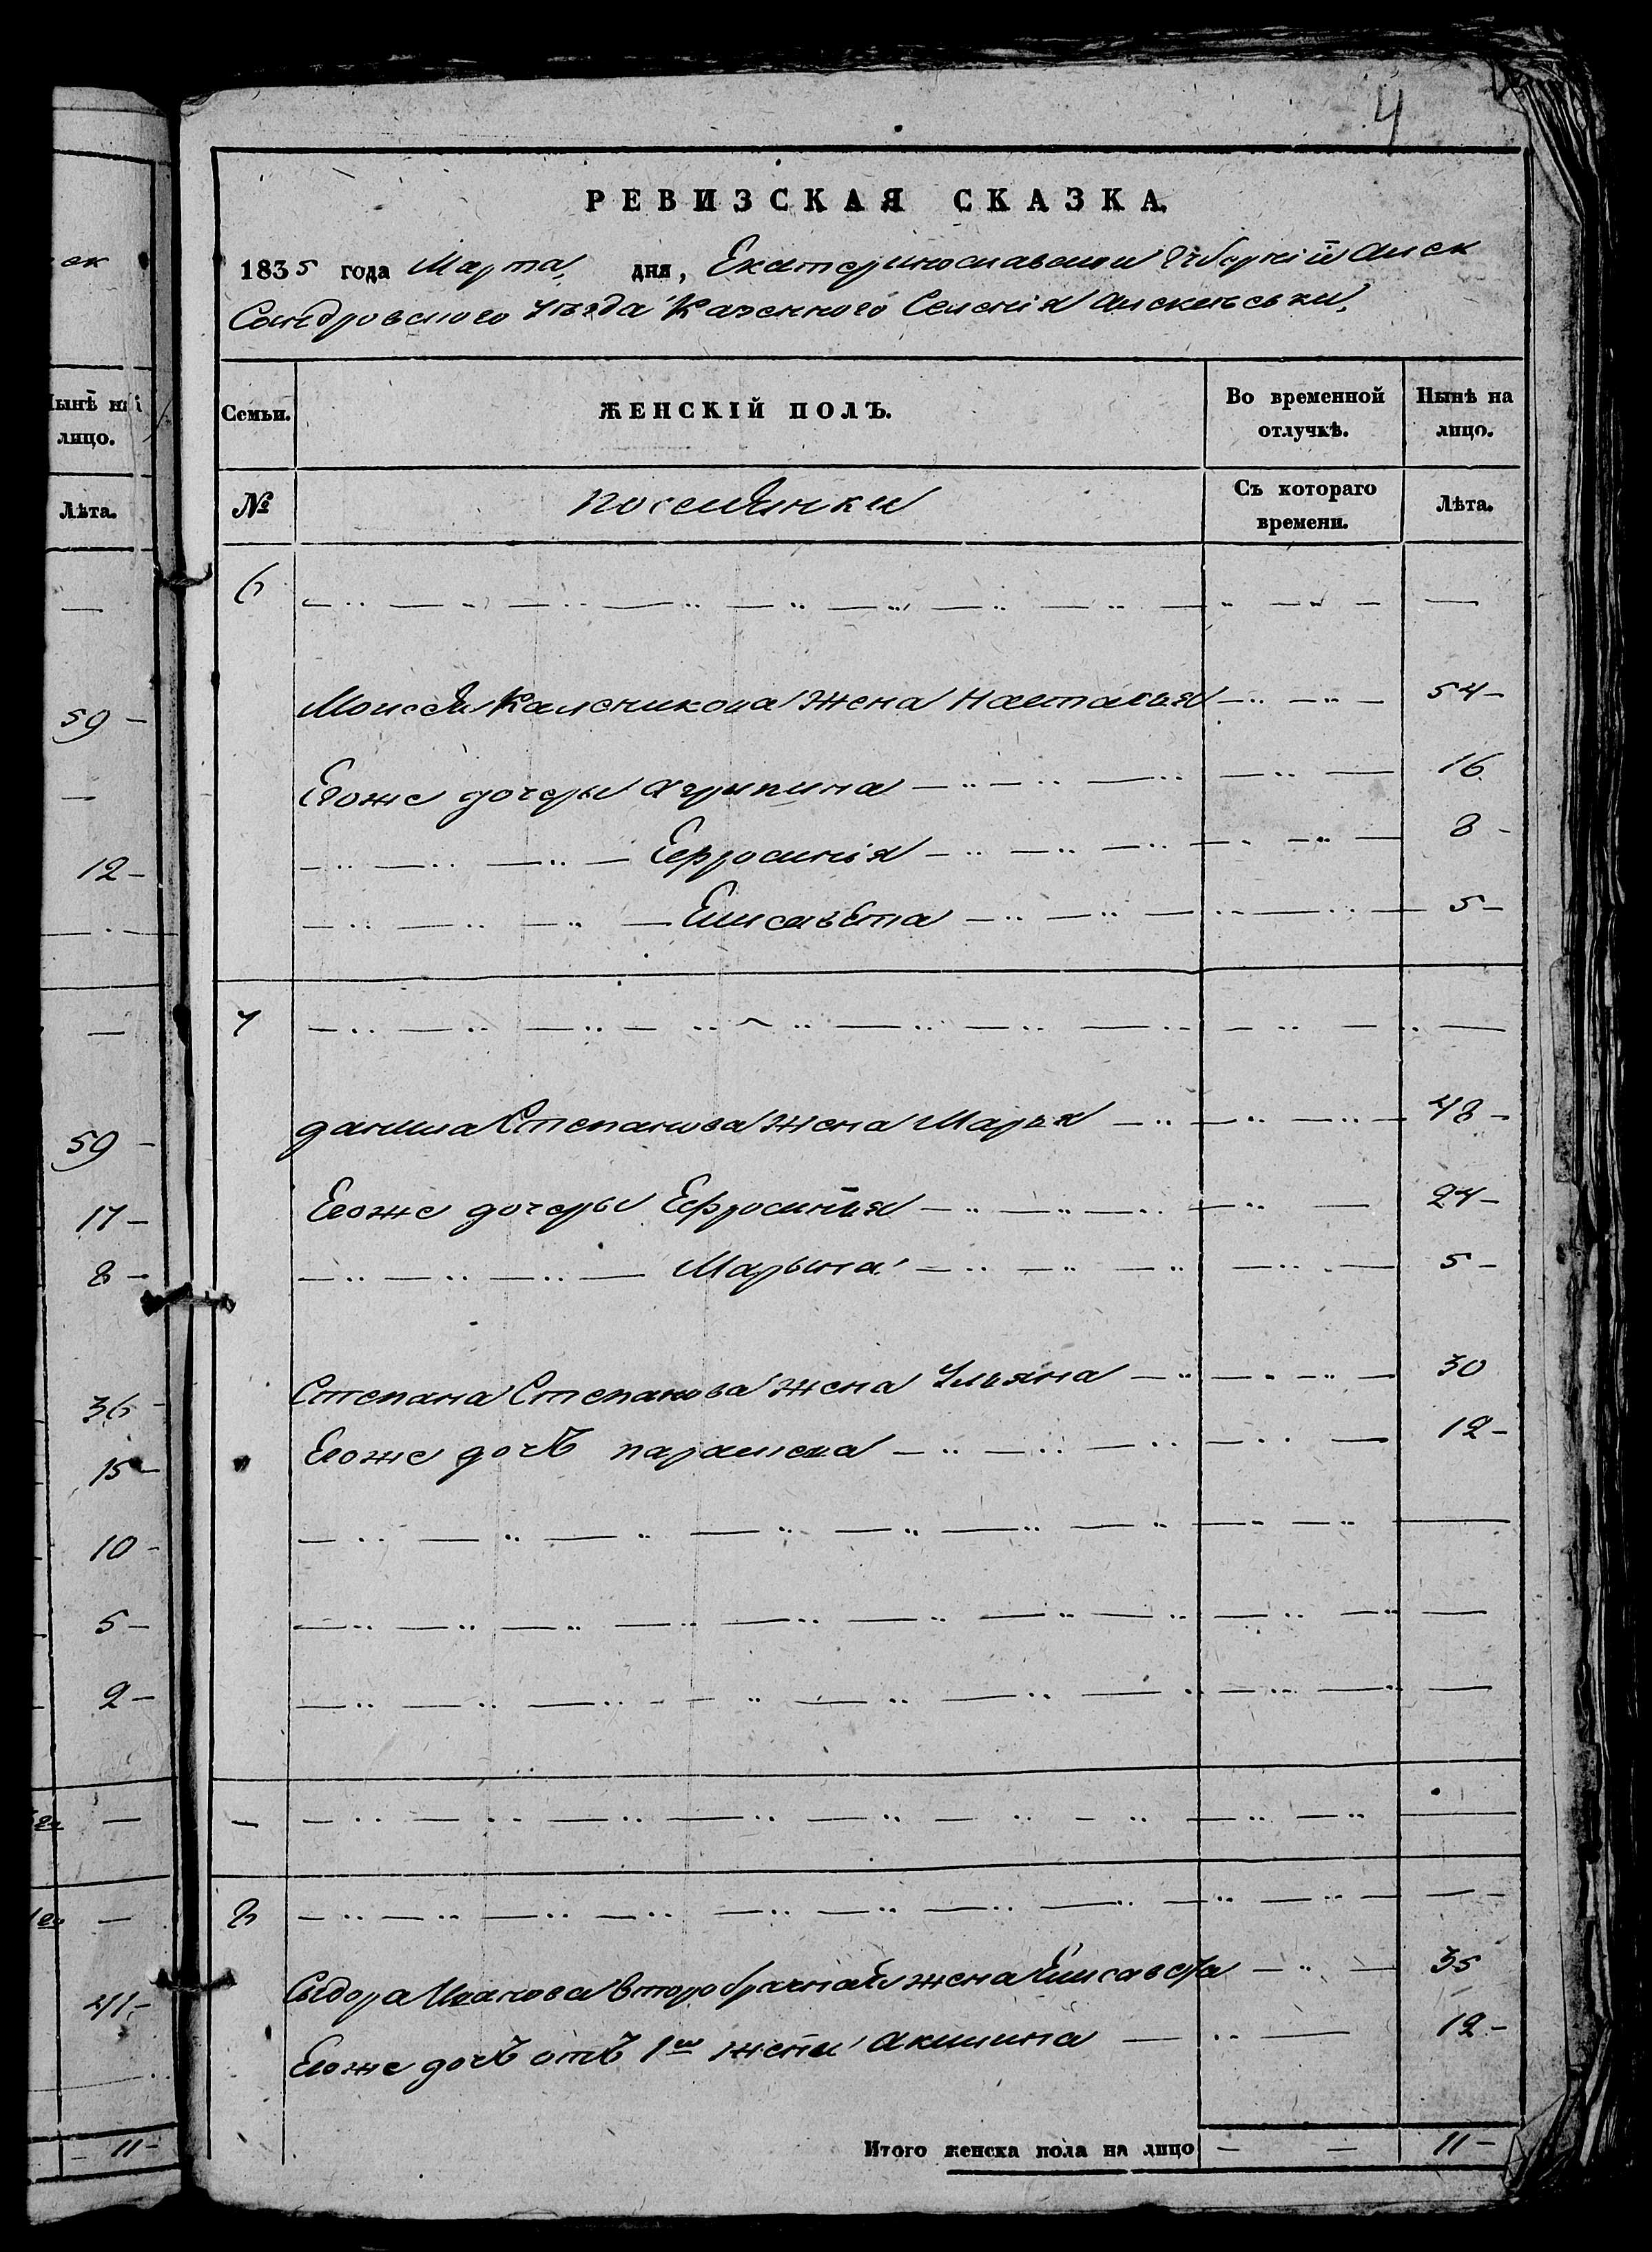 4
РЕВИЗСКАЯ СКАЗКА.
1835 года Марта, дня, Екатеринославской Губерніи Алек
Сандровского Уезда Казенного Селенія Алексевки,
Семьи. ЖЕНСКІЙ ПОЛЪ. Во временной отлучкѣ. Нынѣ на лицо.
№ поселянки Съ котораго времени. Лѣта.
6
Моисея Калсникова жена Настасья 54
Егоже дочеры Агрыпина 16
Ефросинія 8
Елисавета 5
7
данила Степанова жена Марья 48
Егоже дочеры Ефросинья 24
Марына 5
Степана Степанова жена Ульяна 30
Егоже дочь параскева 12
8
Сыдора Иванова второбрачная жена Елисавета 35
Егоже дочь отъ 1й жены Акилина 12
Итого женска пола на лицо 11
ек
Нынѣ на
лицо.
Лѣта.
59
12
59
17
8
36
15
10
5
2
41
11